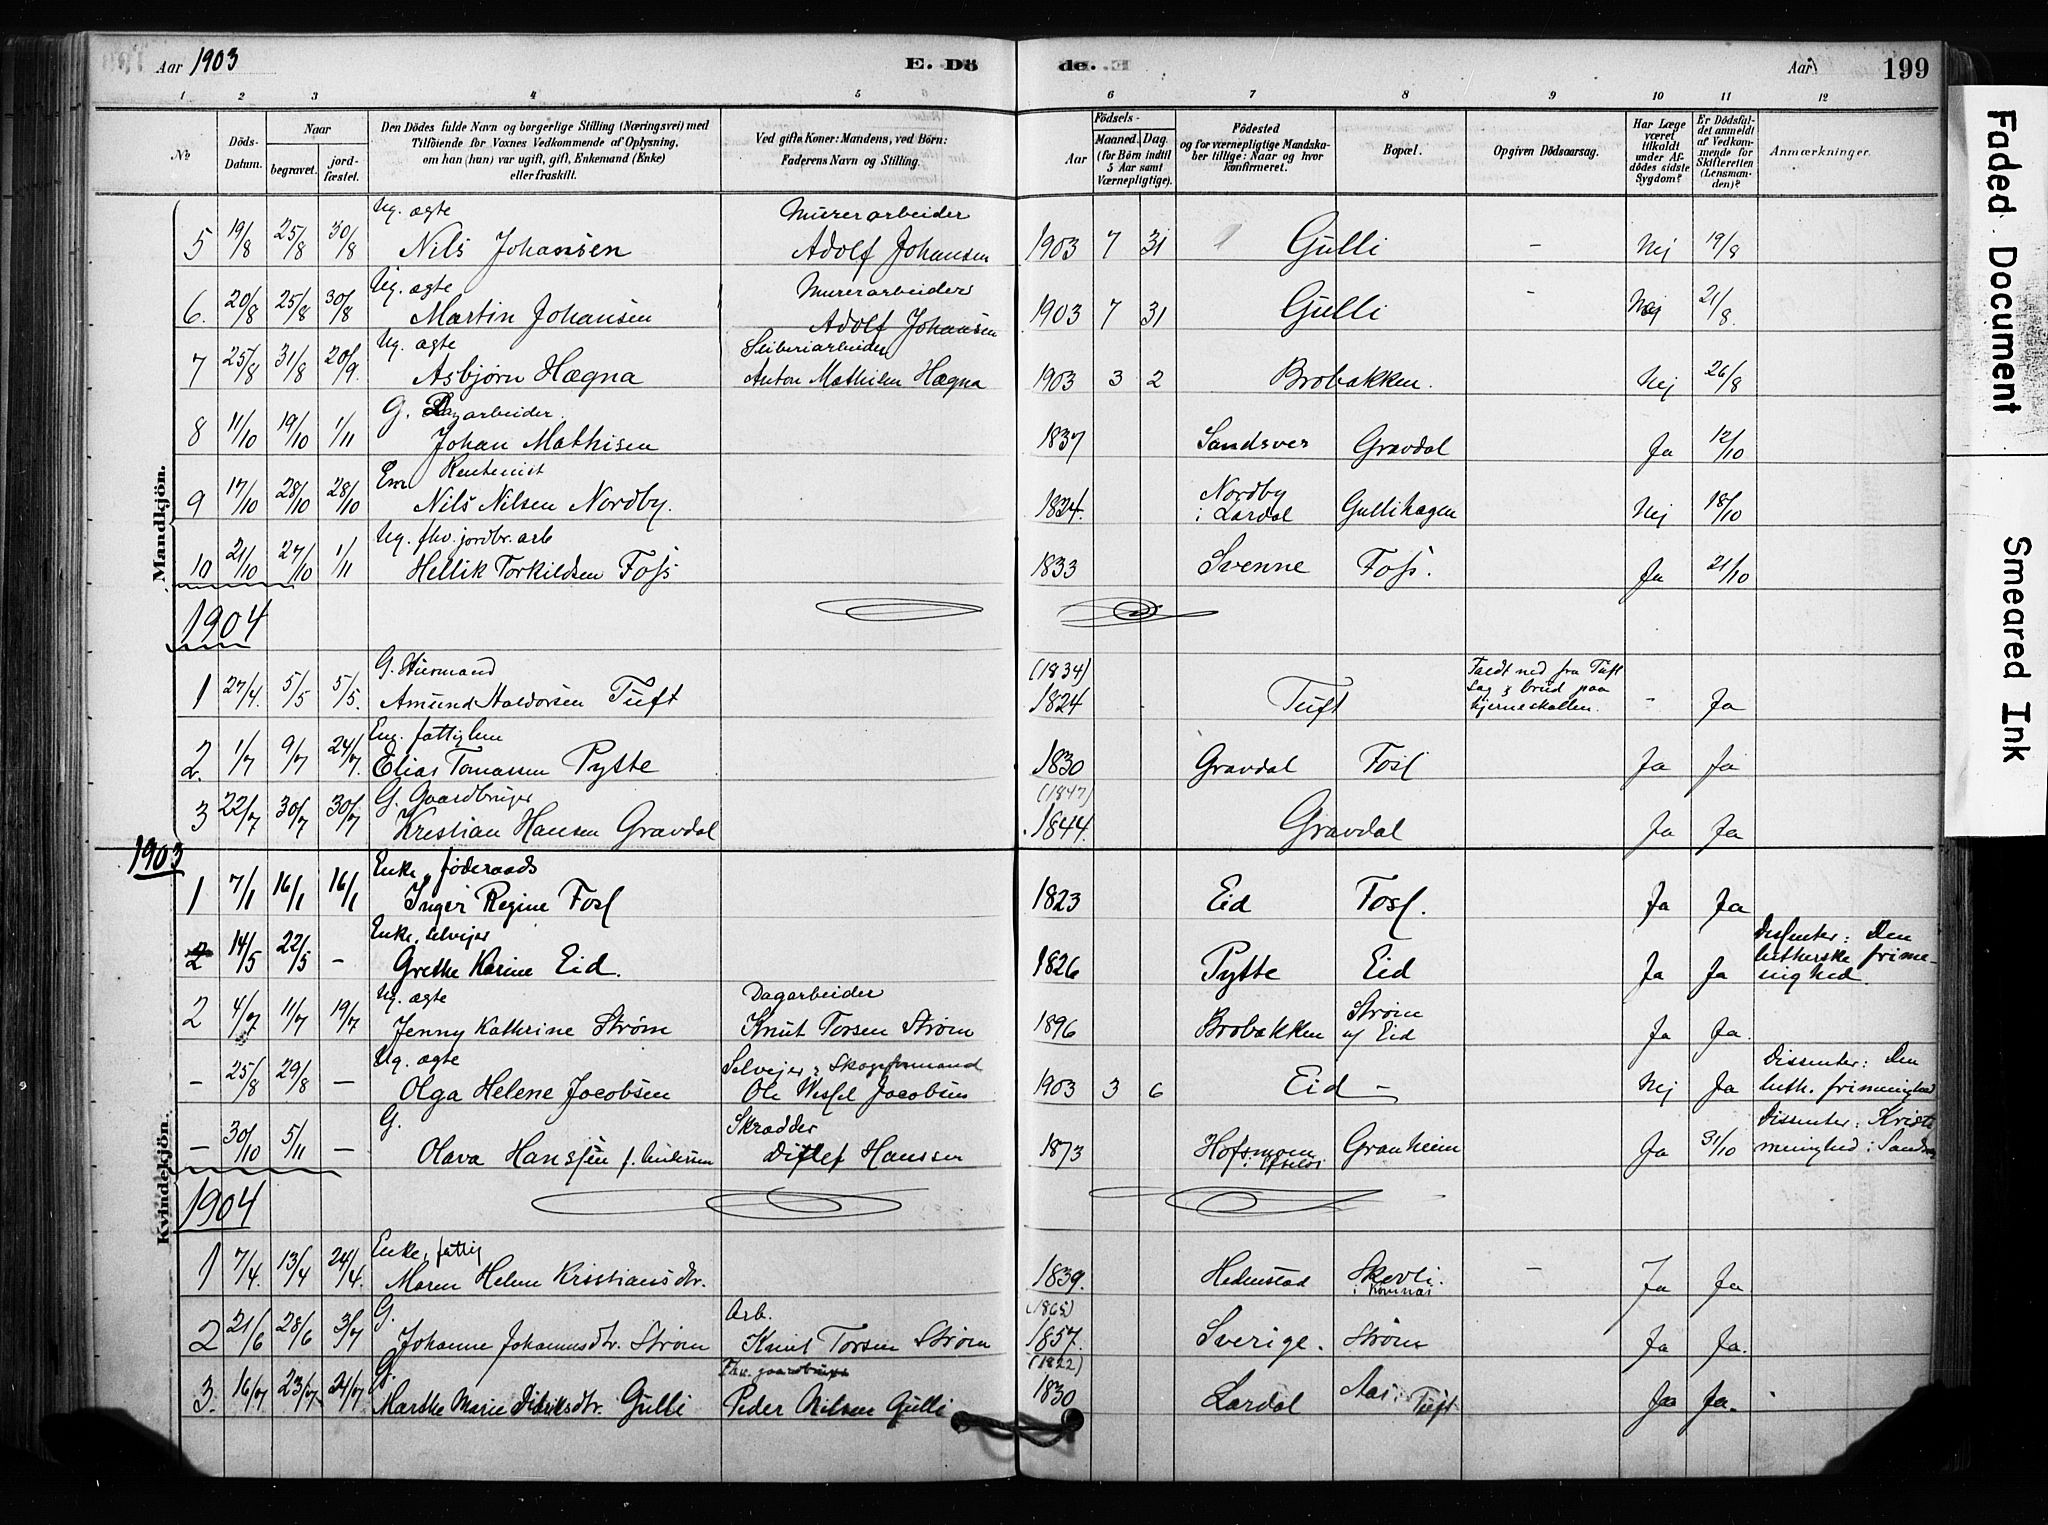 Aar 1903 E. Dö de. Aar 199
1 2 3 4 5 6 7 8 9 10 11 12
No Döds-Datum. Naar begravet. jordfæstet. Den Dödes fulde Navn og borgerlige Stilling (Næringsvei) med Tilföiende for Voxnes Vedkommende af Oplysning, om han (hun) var ugift, gift, Enkemand (Enke) eller fraskilt. Ved gifte Koner: Mandens, ved Börn: Faderens Navn og Stilling. Födsels- Aar Maaned. Dag. (for Börn indtil 5 Aar samt Værnepligtige). Födested og for værnepligtige Mandskaber tillige: Naar og hvor konfirmeret. Bopæl. Opgiven Dödsaarsag. Har Læge været tilkaldt under Afdödes sidste Sygdom? Er Dödsfaldet anmeldt af Vedkommende for Skifteretten (Lensmanden)? Anmærkninger.
Mandkjön.
Ug. ægte Murerarbeider
5 19/8 25/8 30/8 Nils Johansen Adolf Johansen 1903 7 31 Gulli - Nej 19/8
Ug. ægte Murerarbeider
6. 20/8 25/8 30/8 Martin Johansen Adolf Johansen 1903 7 31 Gulli - Nej 21/8.
Ug. ægte
7 25/8 31/8 20/9. Asbjørn Hægna Anton Mathisen Hægna 1903 3 2 Brobakken. Nej 26/8
G. Dagarbeider.
8 11/10 19/10 1/11 Johan Mathisen 1837 Sandsver Gravdal Ja 12/10
Em Rentenist
9 17/10 28/10 28/10 Nils Nilsen Nordby. 1824. Nordby i Lardal Gullihagen Nej 18/10
Ug. fhv. jordbr. arb
10 21/10 27/10 1/11 Hellik Torkildsen Foss 1833 Svenne Foss. Ja 21/10
1904
G. Huusmand (1834)
1 27/4. 5/5 5/5. Amund Haldorsen Tuft 1824 Tuft Faldt ned fra Tuft Sag & brud paa hjerneskallen. - Ja
Em. fattiglem
2. 1/7 9/7 24/7. Elias Tomassen Pytte 1830 Gravdal Fosl Ja Ja
G. Gaardbruger (1847)
3 22/7 30/7 30/7 Kristian Hansen Gravdal 1844. Gravdal Ja Ja
1903
Kvindekjön.
Enke, føderaads
1 7/1 16/1 16/1 Inger Regine Fosl 1823 Eid Fosl. Ja Ja
Enke, selvejer
2 14/5 22/5 - Grethe Karine Eid. 1826 Pytte Eid Ja Ja Dissenter: Den lutherske frimenighed.
Ug. ægte Dagarbeider
2 4/7 11/7 19/7 Jenny Kathrine Strøm Knut Torsen Strøm 1896 Brobakken Strøm u/ Eid Ja Ja
Ug. ægte Selvejer & Skogsformand
- 25/8 29/8 - Olga Helene Jacobsen Ole Wessel Jacobsen 1903 3 6 Eid - Nej Ja Dissenter: Den luth. frimenighed
G. Skrædder
- 30/10 5/11 - Olava Hanssen Ditlef Hanssen 1873 Hofsmoen Granheim Ja 31/10 Dissenter:
1904
Enke, fattig
1 7/4. 13/4 24/4. Maren Helene Kristiansdtr. 1839. Hedenstad Skevli. - Ja Ja
G. Arb. (1865)
2 21/6 28/6 3/7 Johanne Johannesdtr. Strøm Knut Torsen Strøm 1857. Sverige. Strøm Ja Ja.
G. Fhv. gaardbruger (1822)
3. 16/7 23/7 24/7 Marthe Marie Didriksdtr. Gulli Peder Nilsen Gulli 1830 Lardal Aas i Tuft Ja Ja.
Faded Document
Smeared Ink